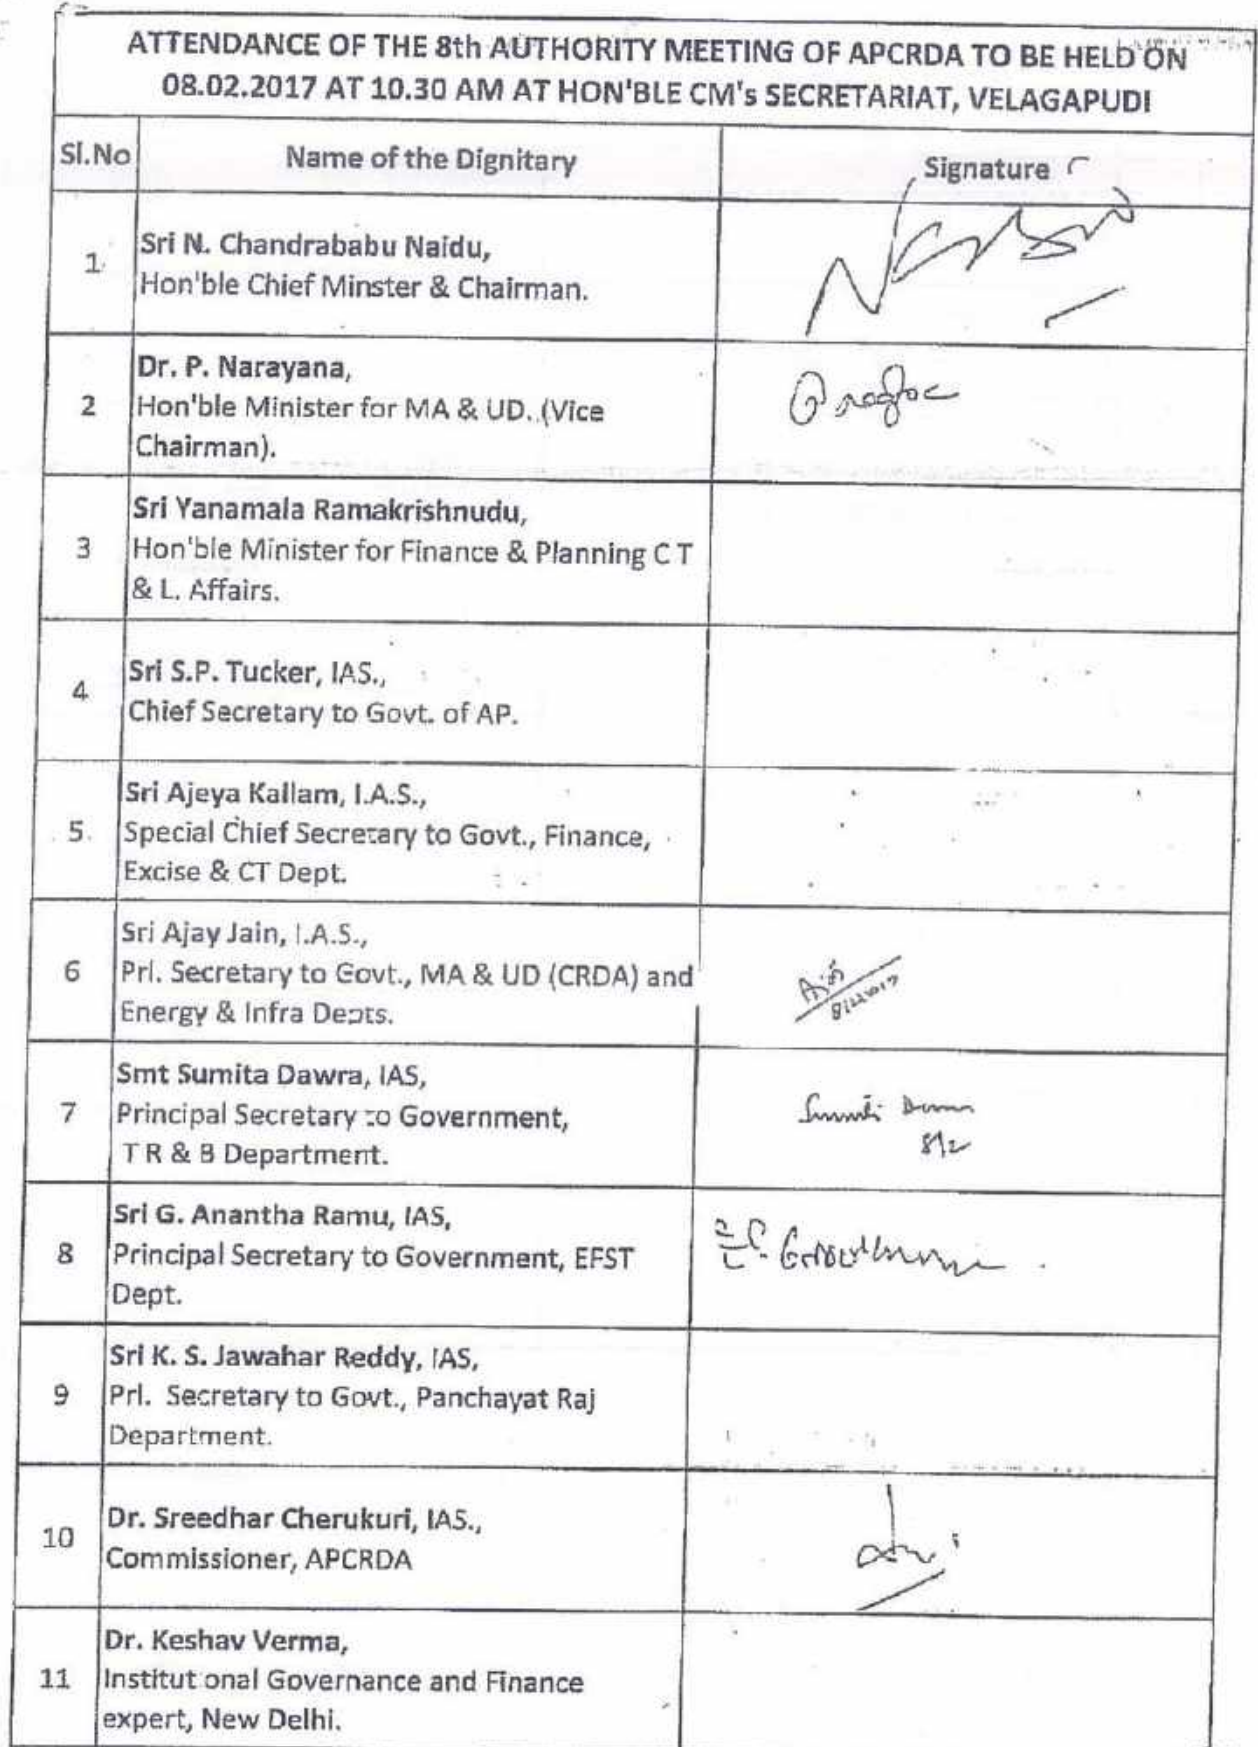 ATTENDANCE OF THE 8th AUTHORITY MEETING OF APCRDA TO BE HELD ON
08.02.2017 AT 10.30 AM AT HON'BLE CM's SECRETARIAT, VELAGAPUDI
Sl.No Name of the Dignitary Signature
1 Sri N. Chandrababu Naidu,
Hon'ble Chief Minster & Chairman.
2 Dr. P. Narayana,
Hon'ble Minister for MA & UD. (Vice
Chairman).
3 Sri Yanamala Ramakrishnudu,
Hon'ble Minister for Finance & Planning C T
& L. Affairs.
4 Sri S.P. Tucker, IAS.,
Chief Secretary to Govt. of AP.
5. Sri Ajeya Kallam, I.A.S.,
Special Chief Secretary to Govt., Finance,
Excise & CT Dept.
6 Sri Ajay Jain, I.A.S.,
Prl. Secretary to Govt., MA & UD (CRDA) and
Energy & Infra Depts.
7 Smt Sumita Dawra, IAS,
Principal Secretary to Government,
T R & B Department.
8/2
8 Sri G. Anantha Ramu, IAS,
Principal Secretary to Government, EFST
Dept.
9 Sri K. S. Jawahar Reddy, IAS,
Prl. Secretary to Govt., Panchayat Raj
Department.
10 Dr. Sreedhar Cherukuri, IAS.,
Commissioner, APCRDA
11 Dr. Keshav Verma,
Institutional Governance and Finance
expert, New Delhi.